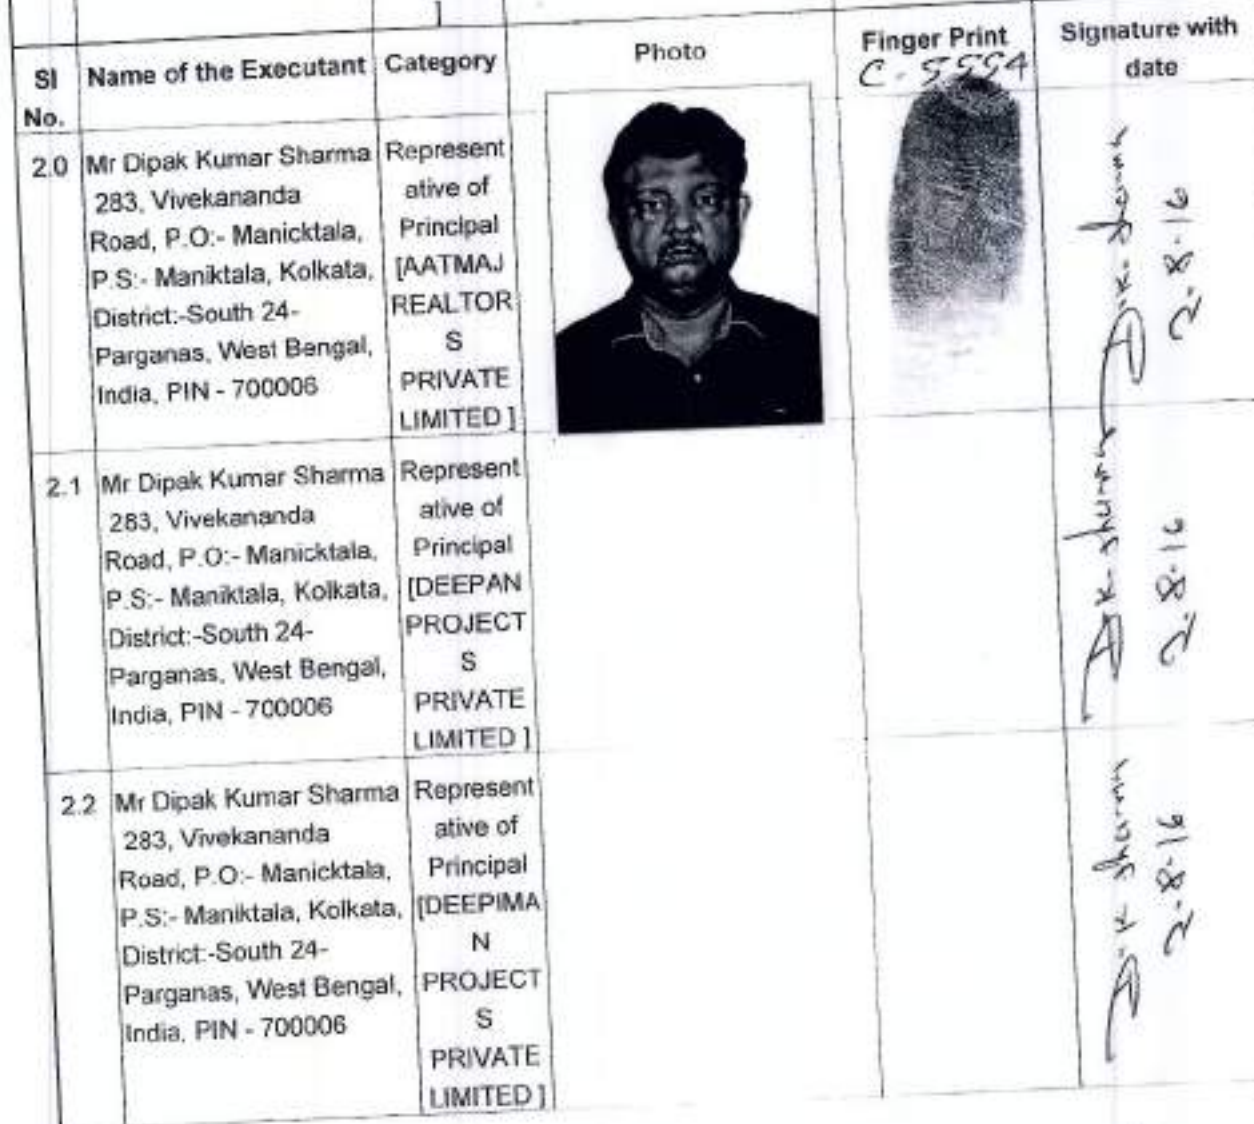 SI No.
Name of the Executant
Category
Photo
Finger Print
C-5554
Signature with
date
2.0
Mr Dipak Kumar Sharma
283, Vivekananda
Road, P.O:- Manicktala,
P.S:- Maniktala, Kolkata,
District:-South 24-
Parganas, West Bengal,
India, PIN - 700006
Represent
ative of
Principal
[AATMAJ
REALTOR
S
PRIVATE
LIMITED ]
D.K. Sharma
2-8-16
2.1
Mr Dipak Kumar Sharma
283, Vivekananda
Road, P.O:- Manicktala,
P.S:- Maniktala, Kolkata,
District:-South 24-
Parganas, West Bengal,
India, PIN - 700006
Represent
ative of
Principal
[DEEPAN
PROJECT
S
PRIVATE
LIMITED ]
D.K. Sharma
2.8.16
2.2
Mr Dipak Kumar Sharma
283, Vivekananda
Road, P.O:- Manicktala,
P.S:- Maniktala, Kolkata,
District:-South 24-
Parganas, West Bengal,
India, PIN - 700006
Represent
ative of
Principal
[DEEPIMA
N
PROJECT
S
PRIVATE
LIMITED ]
D.K Sharma
2-8-16